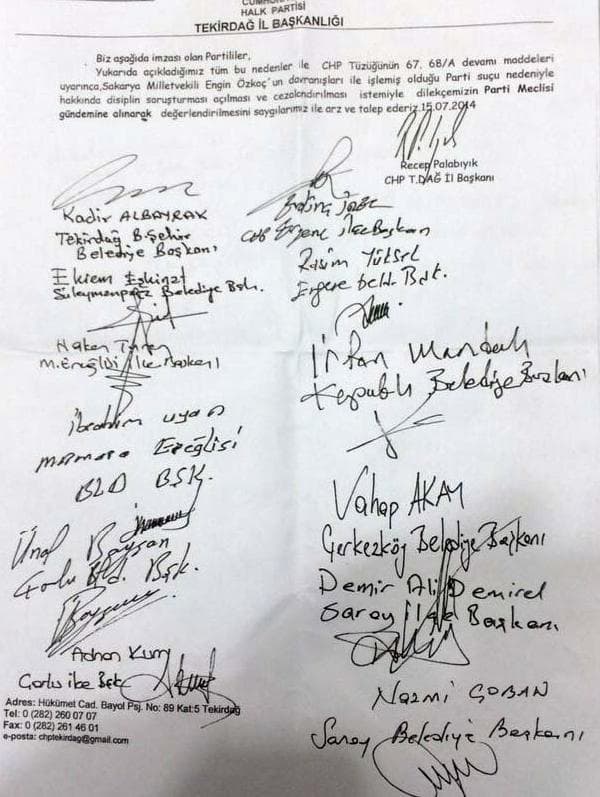 HALK PARTİSİ
TEKİRDAĞ İL BAŞKANLIĞI
Biz aşağıda imzası olan Partililer,
Yukarıda açıkladığımız tüm bu nedenler ile CHP Tüzüğünün 67. 68/A devamı maddeleri
uyarınca,Sakarya Milletvekili Engin Özkoç'un davranışları ile işlemiş olduğu Parti suçu nedeniyle
hakkında disiplin soruşturması açılması ve cezalendirılması istemiyle dilekçemizin Parti Meclisi
gündemine alınarak değerlendirilmesini saygılarımız ile arz ve talep ederiz.15.07.2014
Recep Palabıyık
CHP T.DAĞ İl Başkanı
Kadir ALBAYRAK
Tekirdağ B.Şehir
Belediye Başkanı
Ekrem Eşkinat
Süleymanpaşa Belediye Bşk.
Hakan
M.Ereğlisi İlçe Başkanı
ibrahim uyan
marmara Ereğlisi
BLD BŞK.
Ünal Baysan
Çorlu Bld. Bşk.
Adnan Kum
Çorlu ilçe Bşk
CHP Ergene ilçe Başkan
Rasim Yüksel
Ergene beld. Bşk.
İrfan Mandalı
Kapaklı Belediye Başkanı
Vahap AKAY
Çerkezköy Belediye Başkanı
Demir Ali Demirel
Saray İlçe Başkanı
Nazmi ÇOBAN
Saray Belediye Başkanı
Adres: Hükümet Cad. Bayol Psj. No: 89 Kat:5 Tekirdağ
Tel: 0 (282) 260 07 07
Fax: 0 (282) 261 46 01
e-posta: chptekirdag@gmail.com